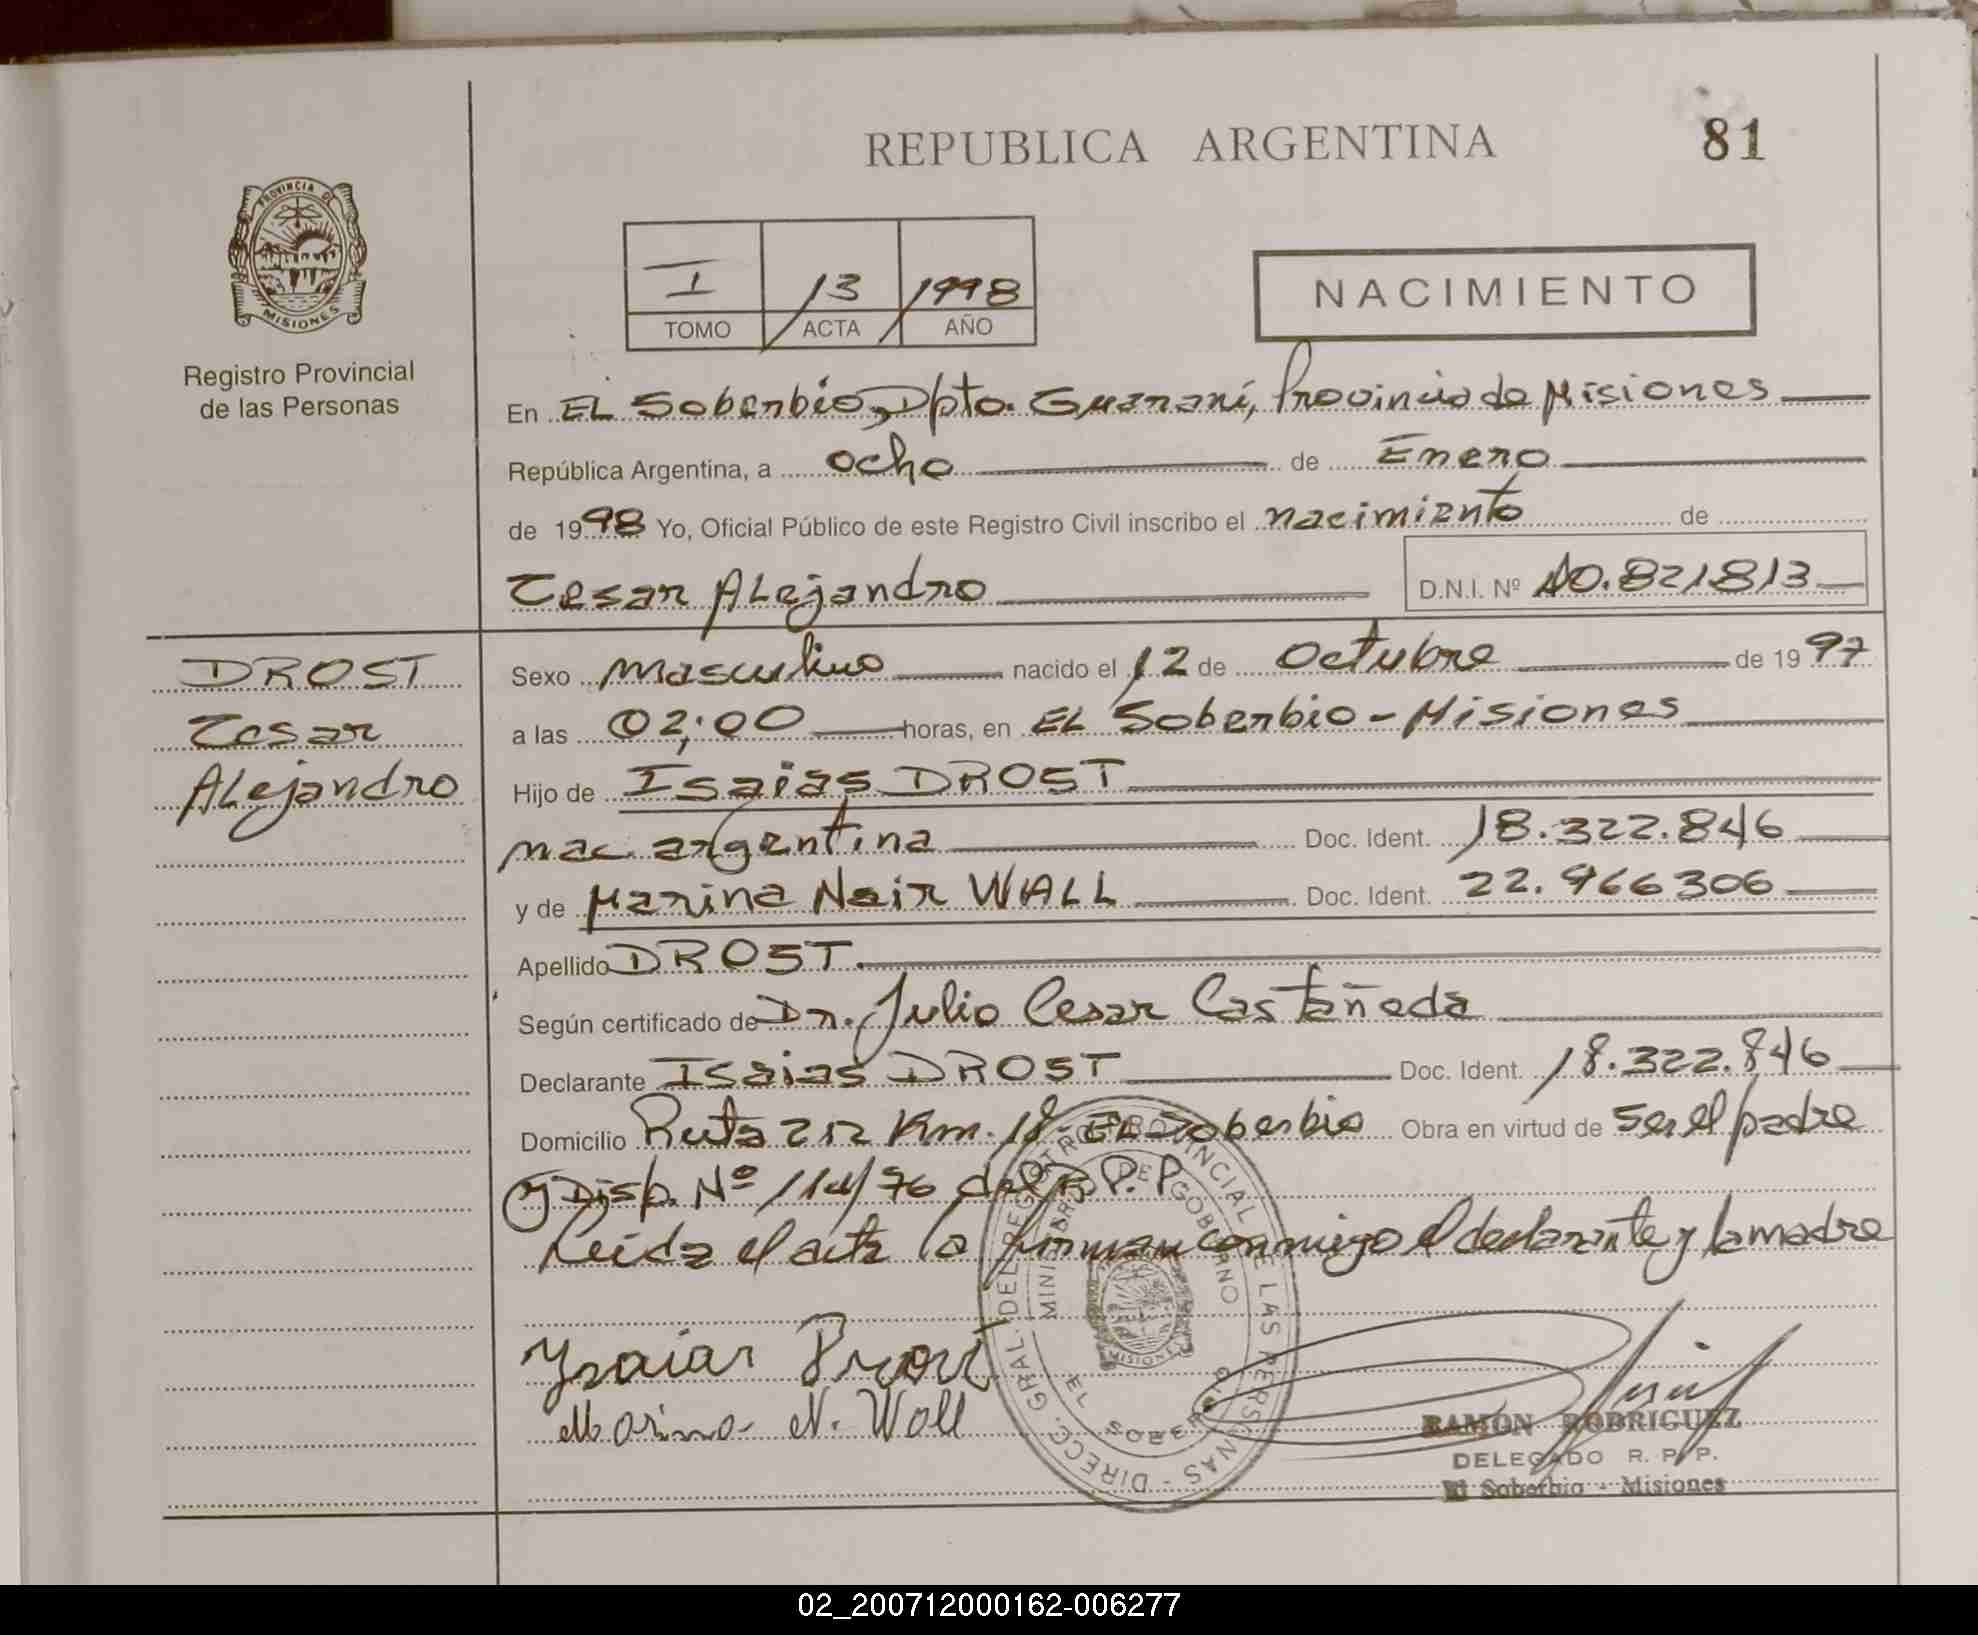 REPUBLICA ARGENTINA
81
PROVINCIA DE
MISIONES
Registro Provincial
de las Personas
I 13 1998
TOMO ACTA AÑO
NACIMIENTO
En EL Soberbio, Dpto. Guaraní, Provincia de Misiones
República Argentina, a ocho de Enero
de 1998 Yo, Oficial Público de este Registro Civil inscribo el nacimiento de
Cesar ALejandro D.N.I. Nº 40.821.813
DROST
Cesar
ALejandro
Sexo Masculino nacido el 12 de Octubre de 1997
a las 02:00 horas, en EL Soberbio - Misiones
Hijo de Isaias DROST
nac. argentina Doc. Ident. 18.322.846
y de Marina Nair WALL Doc. Ident. 22.966306
Apellido DROST.
Según certificado de Dr. Julio Cesar Castañeda
Declarante Isaias DROST Doc. Ident. 18.322.846
Domicilio Ruta 212 Km. 18 - EL Soberbio Obra en virtud de ser el padre
y Disp. Nº 114/76 del R.P.P
Leida el acta la firman conmigo el declarante y la madre
Ysaias Drost
Marina N. Wall
DIRECC. GRAL. DEL REGISTRO PROVINCIAL DE LAS PERSONAS
MINISTERIO DE GOBIERNO
MISIONES
EL SOBERBIO
RAMON RODRIGUEZ
DELEGADO R. P. P.
El Soberbio - Misiones
02_200712000162-006277